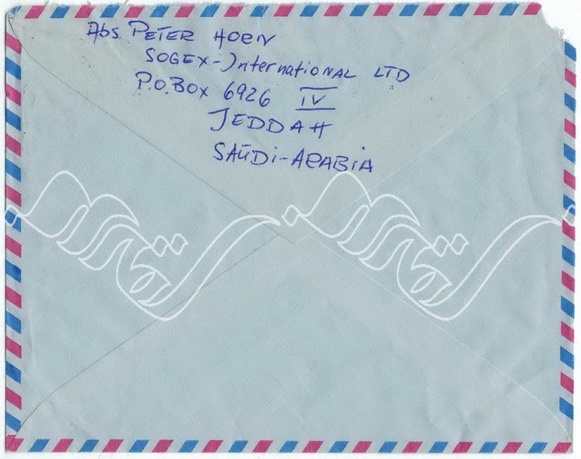 Abs. PETER HORN
SOGEX-International LTD
P.O.Box 6926 IV
JEDDAH
SAUDI-ARABIA